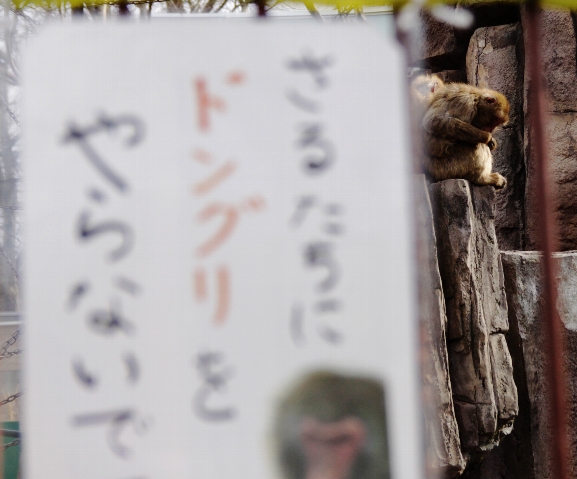 さるたちに
ドングリを
やらないで